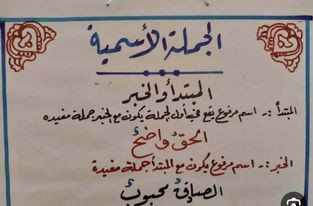 الجملة الأسمية
المبتدأ والخبر
المبتدأ :- اسم مرفوع يقع في أول الجملة يكون مع الخبر جملة مفيده
الحقُ واضحُ
الخبر :- اسم مرفوع يكون مع المبتدأ جملة مفيدة
الصادقُ محبوبُ